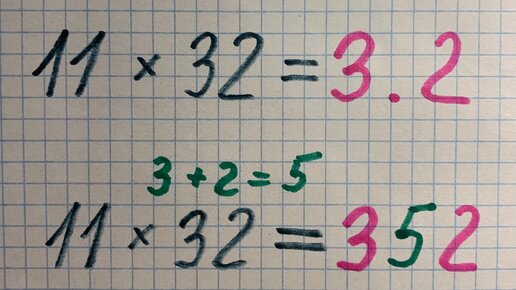 11 × 32 = 3.2
3 + 2 = 5
11 × 32 = 352